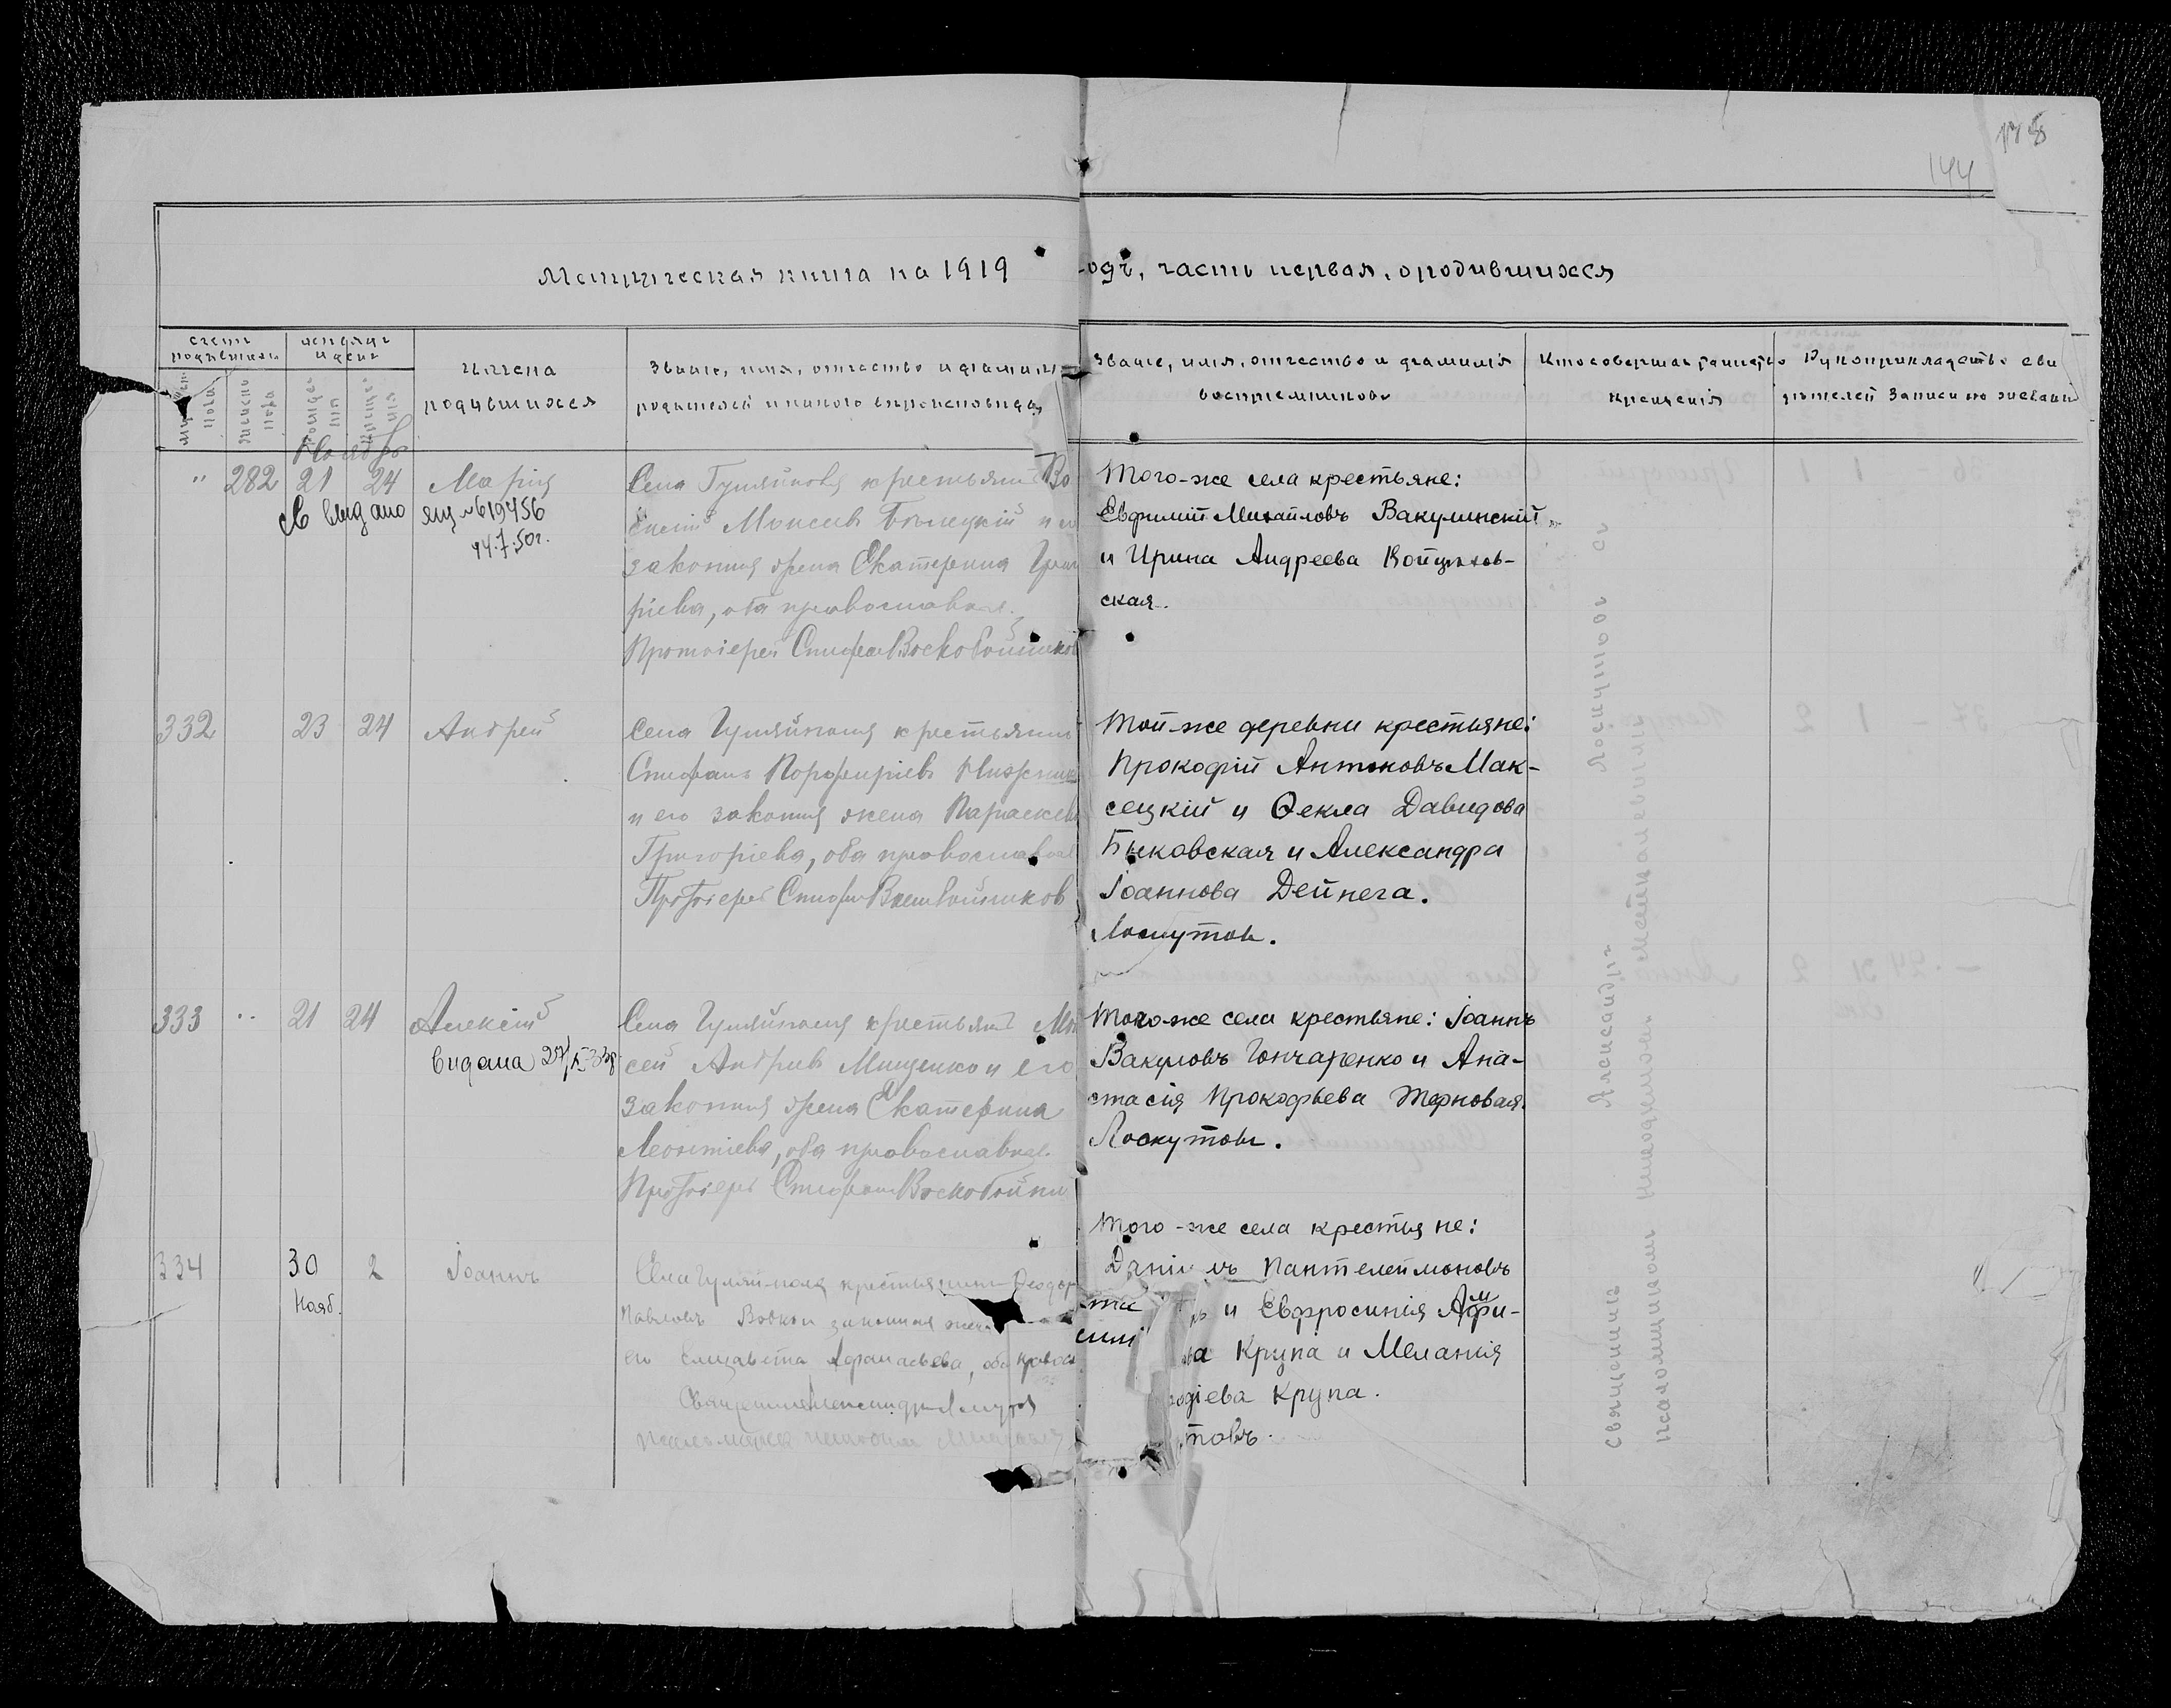 144
Метрическая книга на 1919 годъ, часть первая, о родившихся
Счетъ родившихся
Мѣсяцъ и день
Имена родившихся
Званіе, имя, отчество и фамилія родителей и какого вѣроисповѣданія
Званіе, имя, отчество и фамилія воспріемниковъ
Кто совершал таинство крещенія
Рукоприкладство свидѣтелей записи по желанію
Мужеска пола
Женска пола
рожденія
крещенія
Ноябрь
" 282 21 24 Марія
Св выдано ЯЦ №619456
14.7.50г.
Села Гуляйполя крестьянинъ
Моисеевъ Бѣлецкій и его
законная жена Екатерина Григо
ріева, оба православные.
Протоіерей Стефан Воскобойников
Того-же села крестьяне:
Евфимій Михайловъ Вакулинскій
и Ирина Андреева Войцехов-
ская.
332 23 24 Андрей
Села Гуляйполя крестьянинъ
Стефанъ Порфиріевъ
и его законная жена Параскева
Григоріева, оба православные
Протоіерей Стефан Воскобойников
Той-же деревни крестьяне:
Прокофій Антоновъ Мак-
сецкій и Ѳекла Давидова
Быковская и Александра
Іоаннова Дейнега.
Лоскутовъ.
333 " 21 24 Алексій
видана
Села Гуляйполя крестьянинъ Мои
сей Андреевъ Мищенко и его
законная жена Екатерина
Леонтіева, оба православные.
Протоіерей Стефан Воскобойни
Того-же села крестьяне: Іоаннъ
Вакуловъ Гончаренко и Ана-
стасія Прокофьева Терновая.
Лоскутовъ.
334 30 2 Іоаннъ
Нояб.
Села Гуляй-поля крестьянинъ Ѳеодор
Павловъ Вовкъ и законная жена
его Елизавета Афанасьева, оба правос
Священникъ Александръ Лоскутов
Псаломщикъ Никодим
Того-же села крестьяне:
Даніилъ Пантелеймоновъ
и Евфросинія
ва Крупа и Меланія
одіева Крупа.
товъ.
Священникъ Александръ Лоскутовъ съ
псаломщикомъ Никодимом